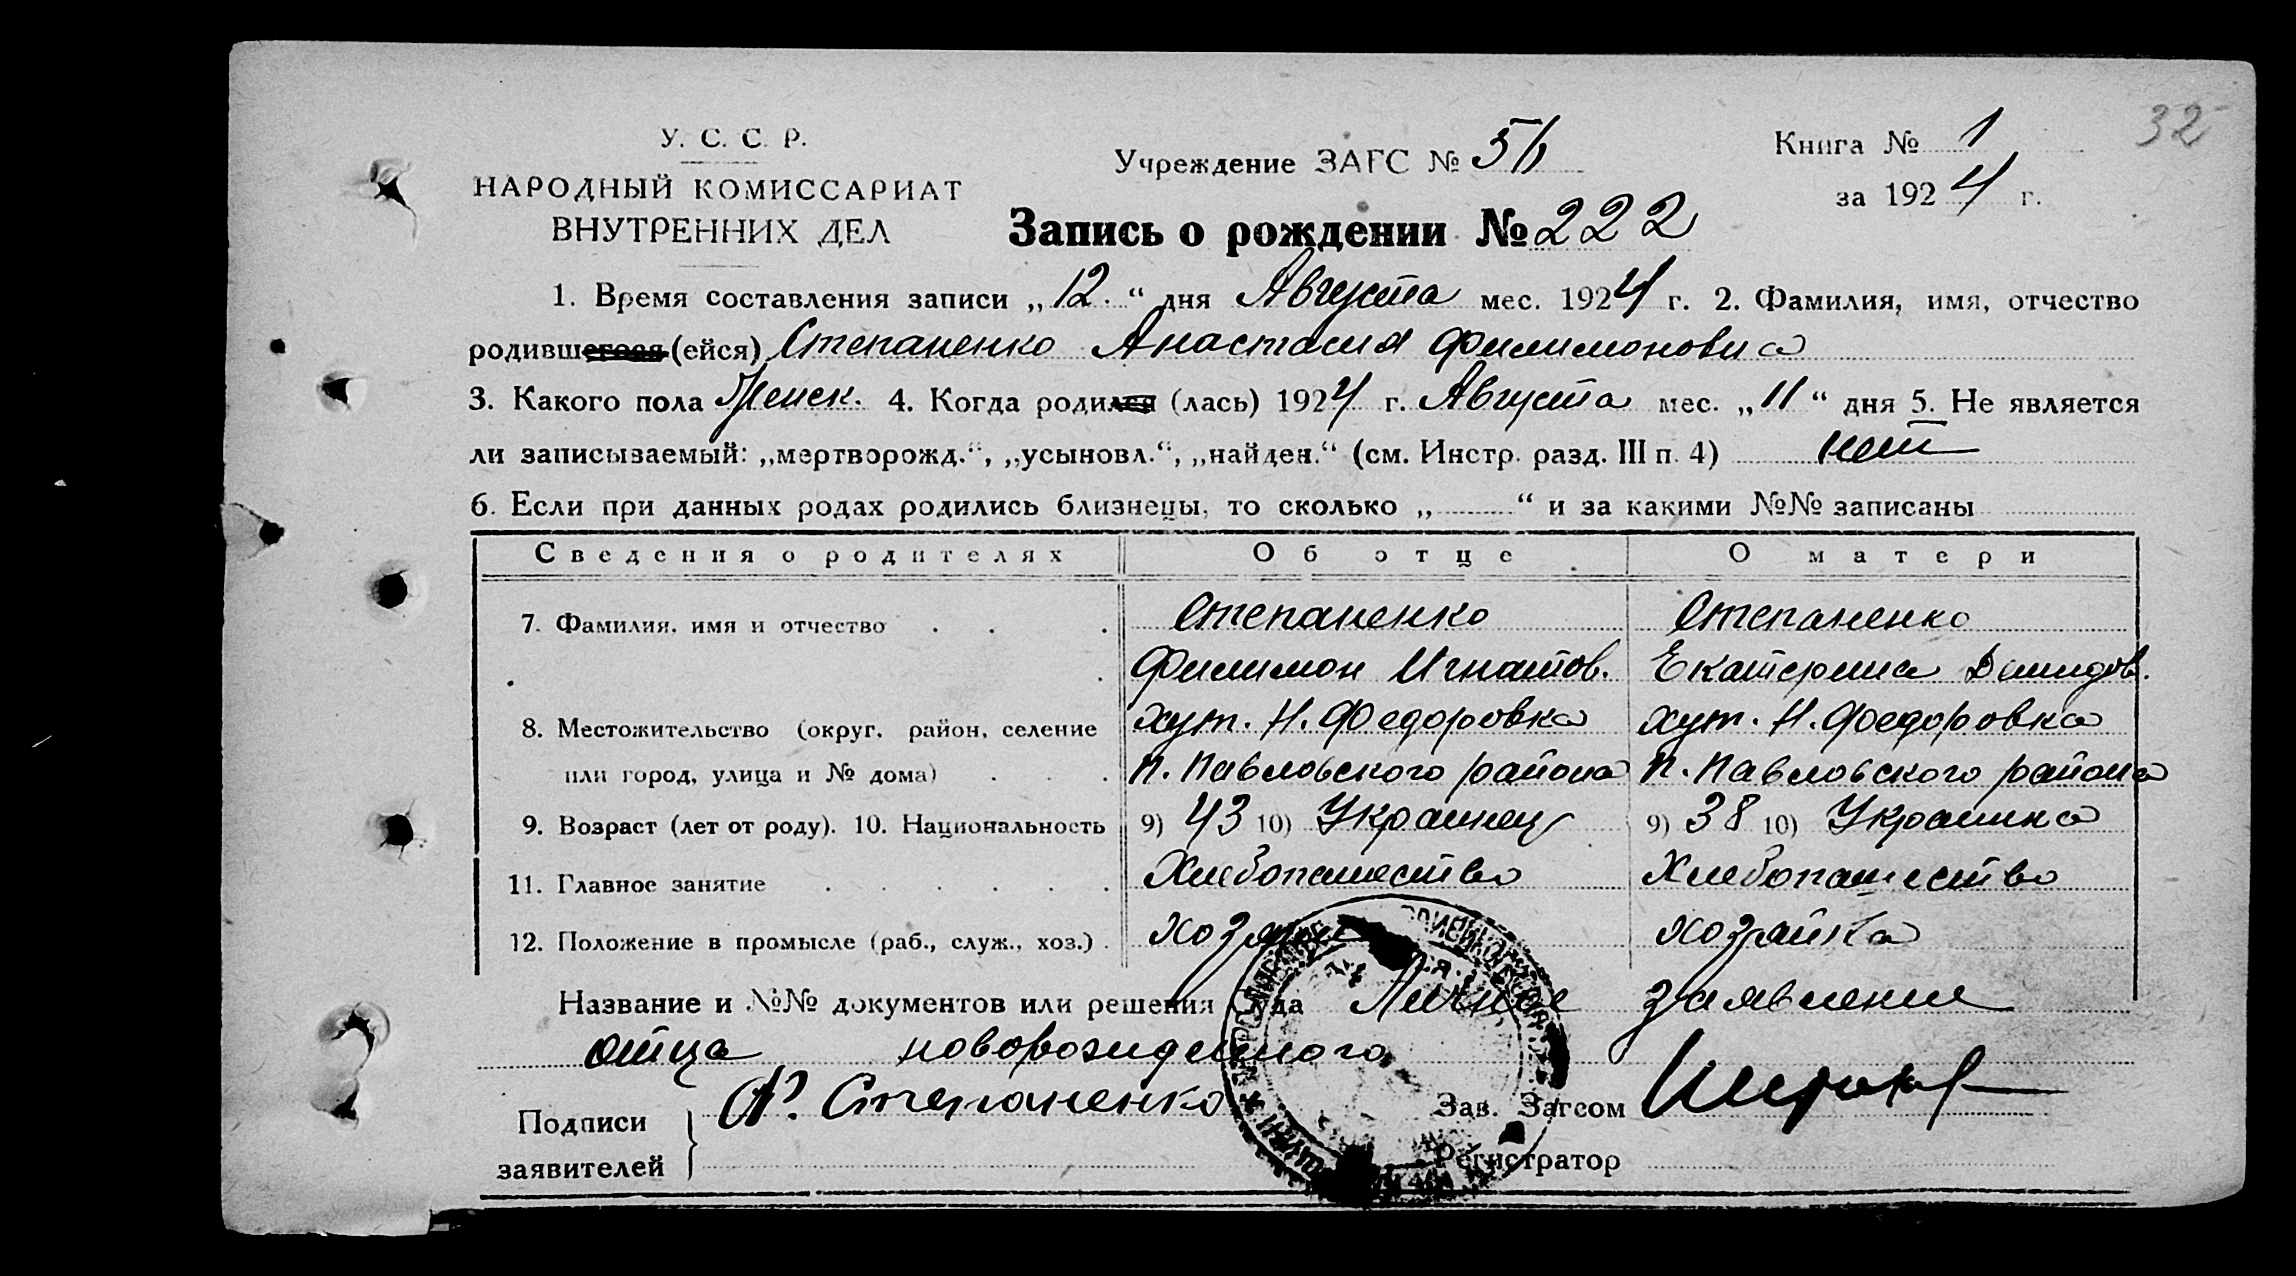 32
У. С. С. Р.
НАРОДНЫЙ КОМИССАРИАТ
ВНУТРЕННИХ ДЕЛ
Учреждение ЗАГС № 56
Книга № 1
за 1924 г.
Запись о рождении № 222
1. Время составления записи „12.“ дня Августа мес. 1924 г. 2. Фамилия, имя, отчество
родившегося (ейся) Степаненко Анастасия Филимоновна
3. Какого пола Женск. 4. Когда родился (лась) 1924 г. Августа мес. „11“ дня 5. Не является
ли записываемый: „мертворожд.“, „усыновл.“, „найден.“ (см. Инстр. разд. III п. 4) нет
6. Если при данных родах родились близнецы, то сколько „ “ и за какими №№ записаны
Сведения о родителях Об отце О матери
7. Фамилия, имя и отчество Степаненко Степаненко
Филимон Игнатов. Екатерина Демидов.
8. Местожительство (округ, район, селение хут. Н. Федоровка хут. Н. Федоровка
или город, улица и № дома) П. Павловского района П. Павловского района
9. Возраст (лет от роду). 10. Национальность 9) 43 10) Украинец 9) 38 10) Украинка
11. Главное занятие Хлебопашество Хлебопашество
12. Положение в промысле (раб., служ., хоз.) хозяин хозяйка
Название и №№ документов или решения Суда Личное заявление
отца новорожденного
Подписи Ф. Степаненко Зав. Загсом
заявителей Регистратор